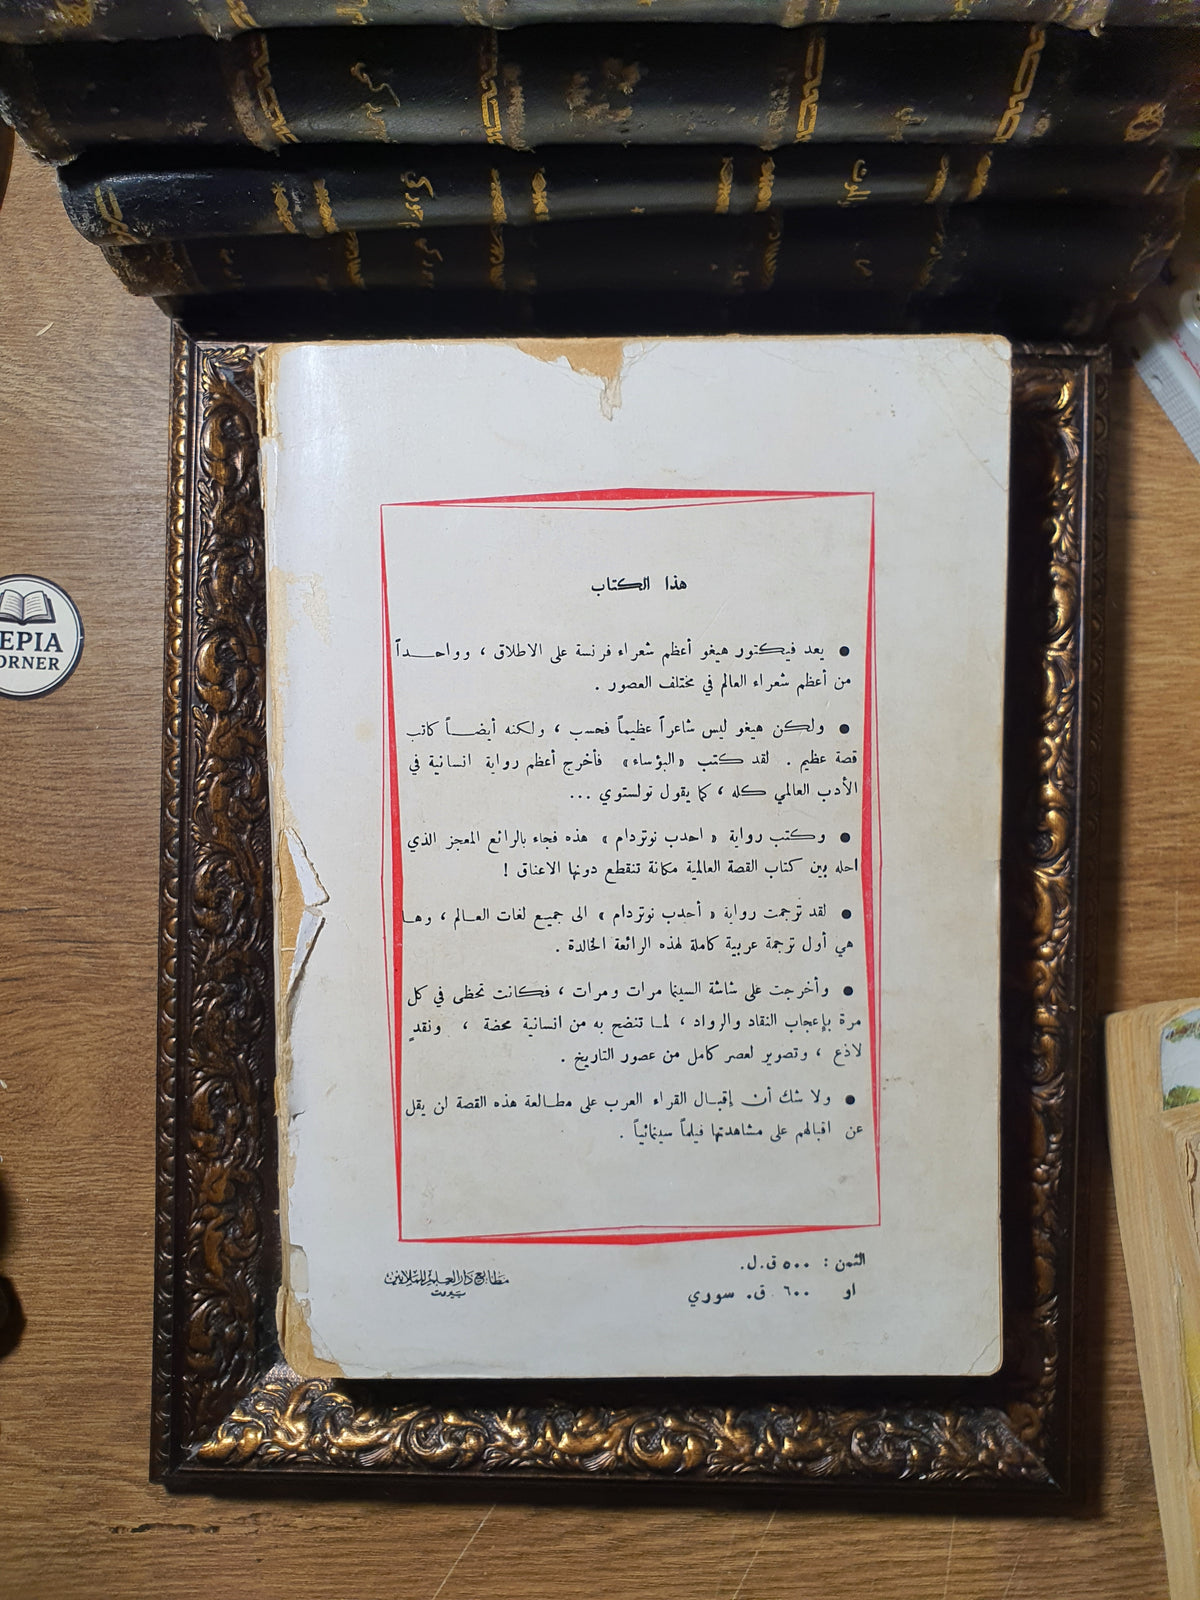 كي
جوركي
زاوت
EPIA
ORNER
هذا الكتاب
● يعد فيكتور هيغو أعظم شعراء فرنسة على الاطلاق ، وواحـــداً
من أعظم شعراء العالم في مختلف العصور .
● ولكن هيغو ليس شاعراً عظيماً فحسب ، ولكنه أيضـــاً كاتب
قصة عظيم . لقد كتب «البؤساء» فأخرج أعظم رواية انسانية في
الأدب العالمي كله ، كما يقول تولستوي ...
● وكتب رواية « احدب نوتردام » هذه فجاء بالرائع المعجز الذي
احله بين كتاب القصة العالمية مكانة تنقطع دونها الاعناق !
● لقد تُرجمت رواية « أحدب نوتردام » الى جميع لغات العـالم ، وهـا
هي أول ترجمة عربية كاملة لهذه الرائعة الخالدة .
● وأخرجت على شاشة السينما مرات ومرات ، فكانت تحظى في كل
مرة بإعجاب النقاد والرواد ، لمـا تنضح به من انسانية محضة ، ونقدٍ
لاذع ، وتصوير لعصر كامل من عصور التاريخ .
● ولا شك أن إقبـال القراء العرب على مطـالعة هذه القصة لن يقل
عن اقبالهم على مشاهدتها فيلماً سينمائياً .
الثمن : ٥٠٠ ق.ل.
او ٦٠٠ ق. سوري
مطابع دار العلم للملايين
بيروت